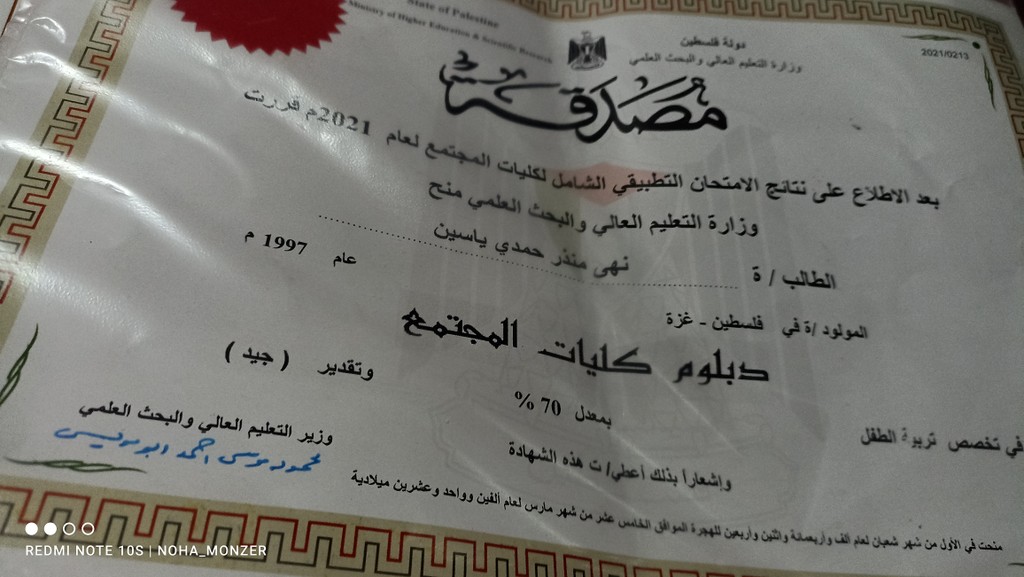 State of Palestine
Ministry of Higher Education & Scientific Research
دولة فلسطين
وزارة التعليم العالي والبحث العلمي
2021/0213
مصدقة
بعد الاطلاع على نتائج الامتحان التطبيقي الشامل لكليات المجتمع لعام 2021م قررت
وزارة التعليم العالي والبحث العلمي منح
الطالب / ة نهى منذر حمدي ياسين
المولود /ة في فلسطين - غزة عام 1997 م
دبلوم كليات المجتمع
في تخصص تربية الطفل بمعدل 70 % وتقدير ( جيد )
وإشعاراً بذلك أعطي/ ت هذه الشهادة
وزير التعليم العالي والبحث العلمي
محمود موسى احمد ابو مويس
منحت في الأول من شهر شعبان لعام ألف وأربعمائة واثنين وأربعين للهجرة الموافق الخامس عشر من شهر مارس لعام ألفين وواحد وعشرين ميلادية
REDMI NOTE 10S | NOHA_MONZER